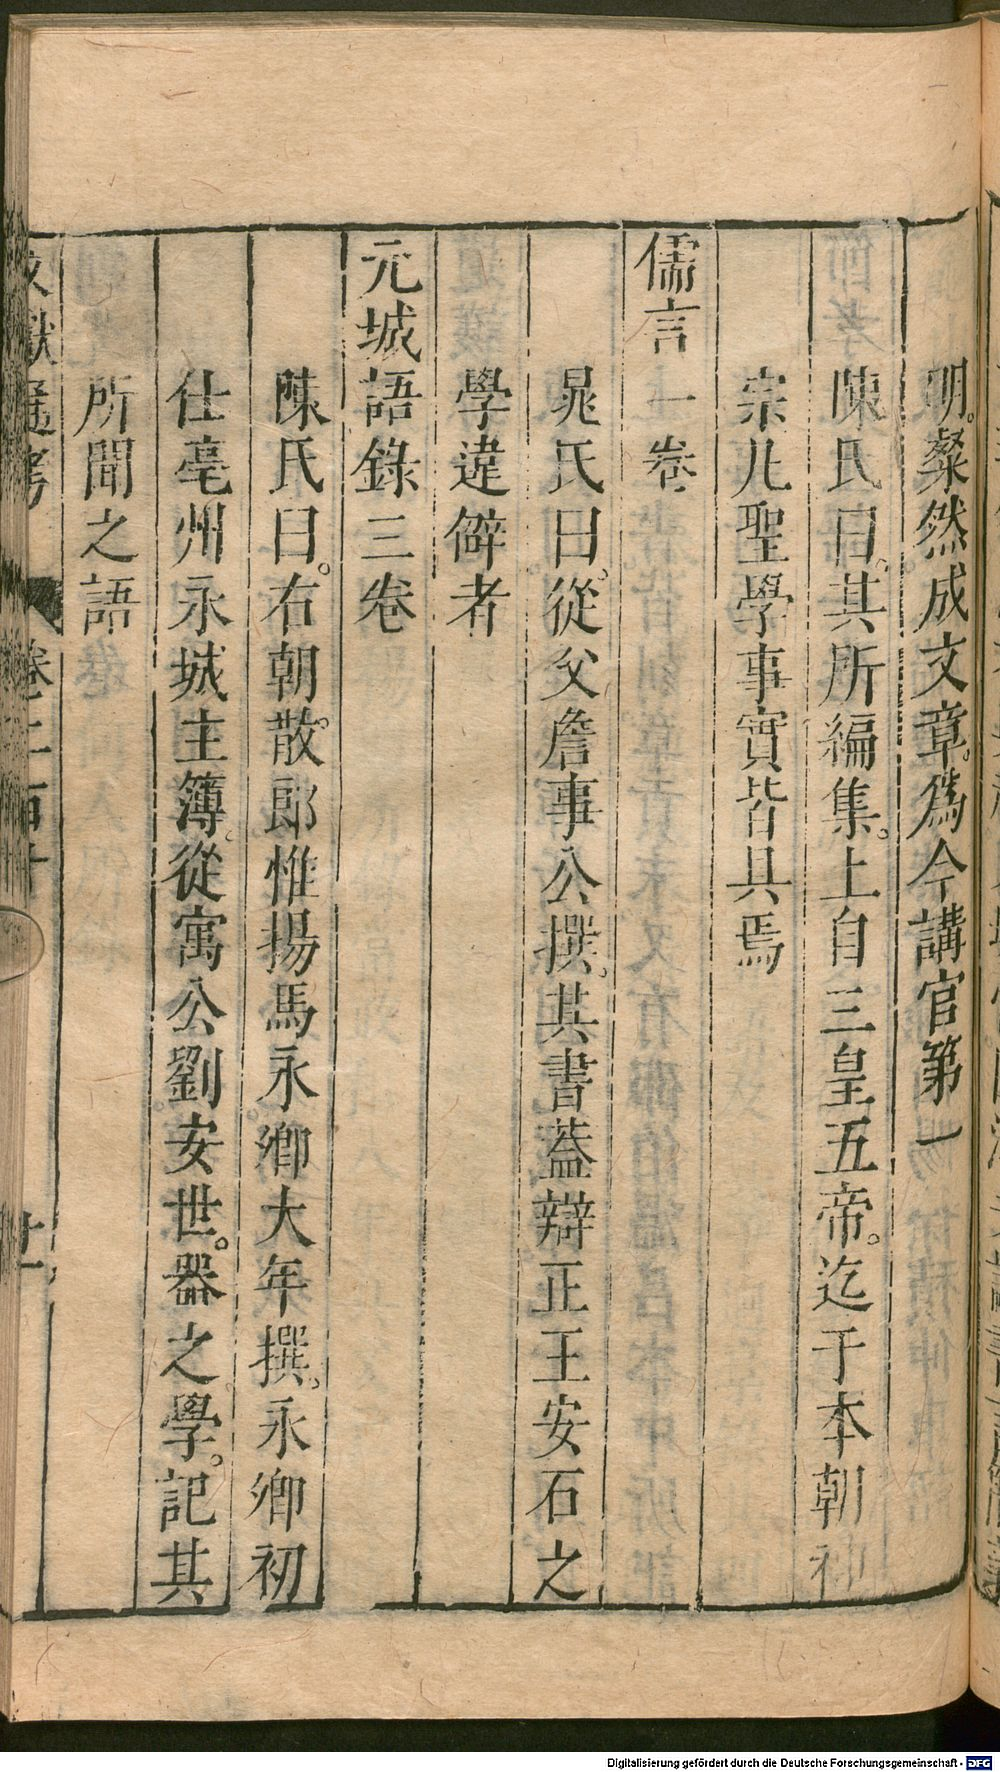 明。粲然成文章。爲今講官第一
陳氏曰。其所編集。上自三皇五帝。迄于本朝神
宗凡聖學事實皆具焉
儒言一卷
晁氏曰。從父詹事公撰。其書蓋辯正王安石之
學違僻者
元城語錄三卷
陳氏曰。右朝散郎惟揚馬永卿大年撰。永卿初
仕亳州永城主簿。從寓公劉安世。器之學。記其
所聞之語
文獻通考 卷二百十
Digitalisierung gefördert durch die Deutsche Forschungsgemeinschaft - DFG